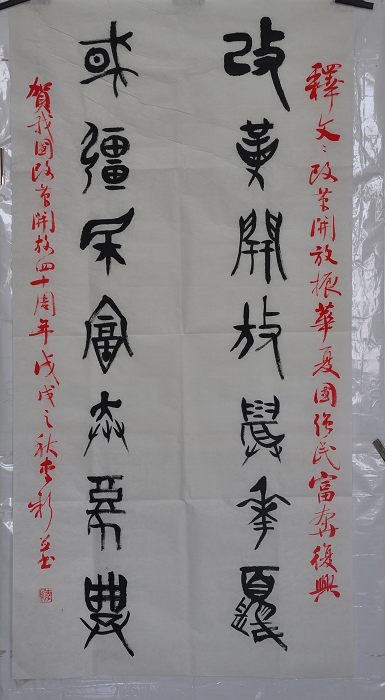 釋文：改革開放振華夏國强民富奔復興
改革開放振華夏
或彊民富奔復興
賀我國改革開放四十周年戊戌之秋